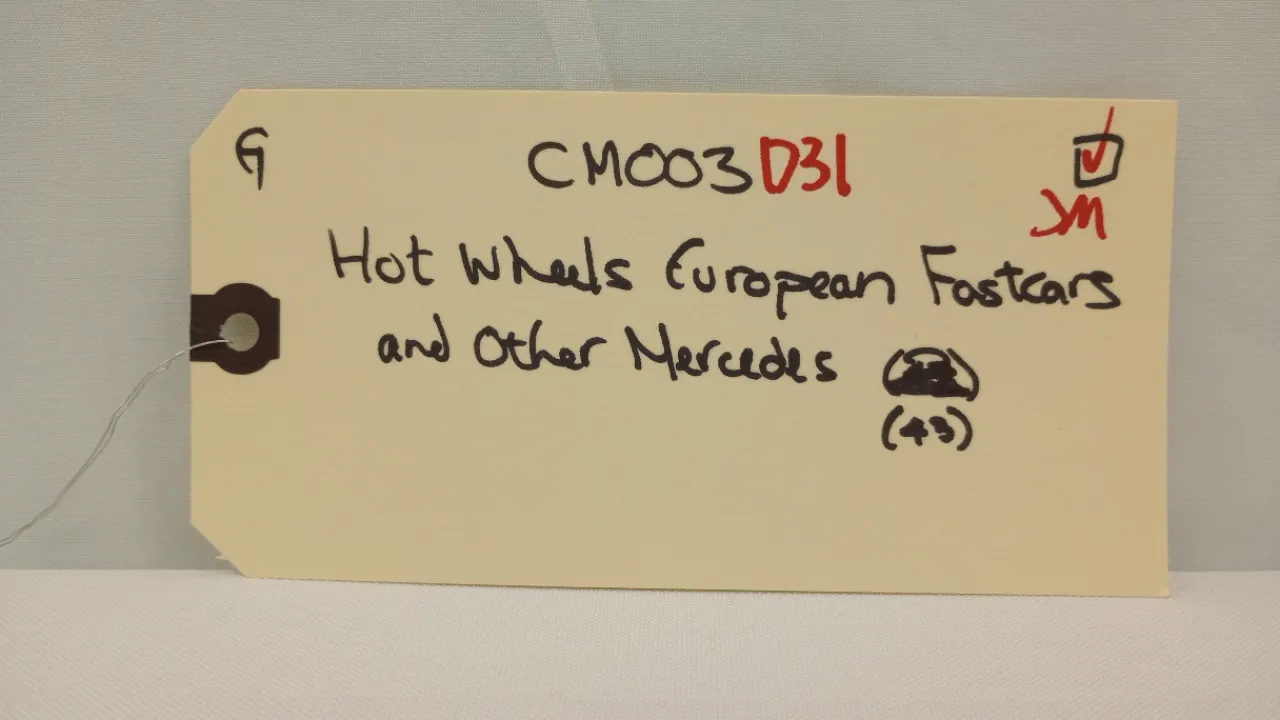 G
CM003D31
JM
Hot Wheels European Fastcars
and Other Mercedes
(43)